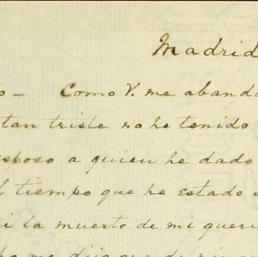 Madrid
Como V. me abando
tan triste no he tenido
esposo a quien he dado
l tiempo que he estado
i la muerte de mi queri
me dijo que